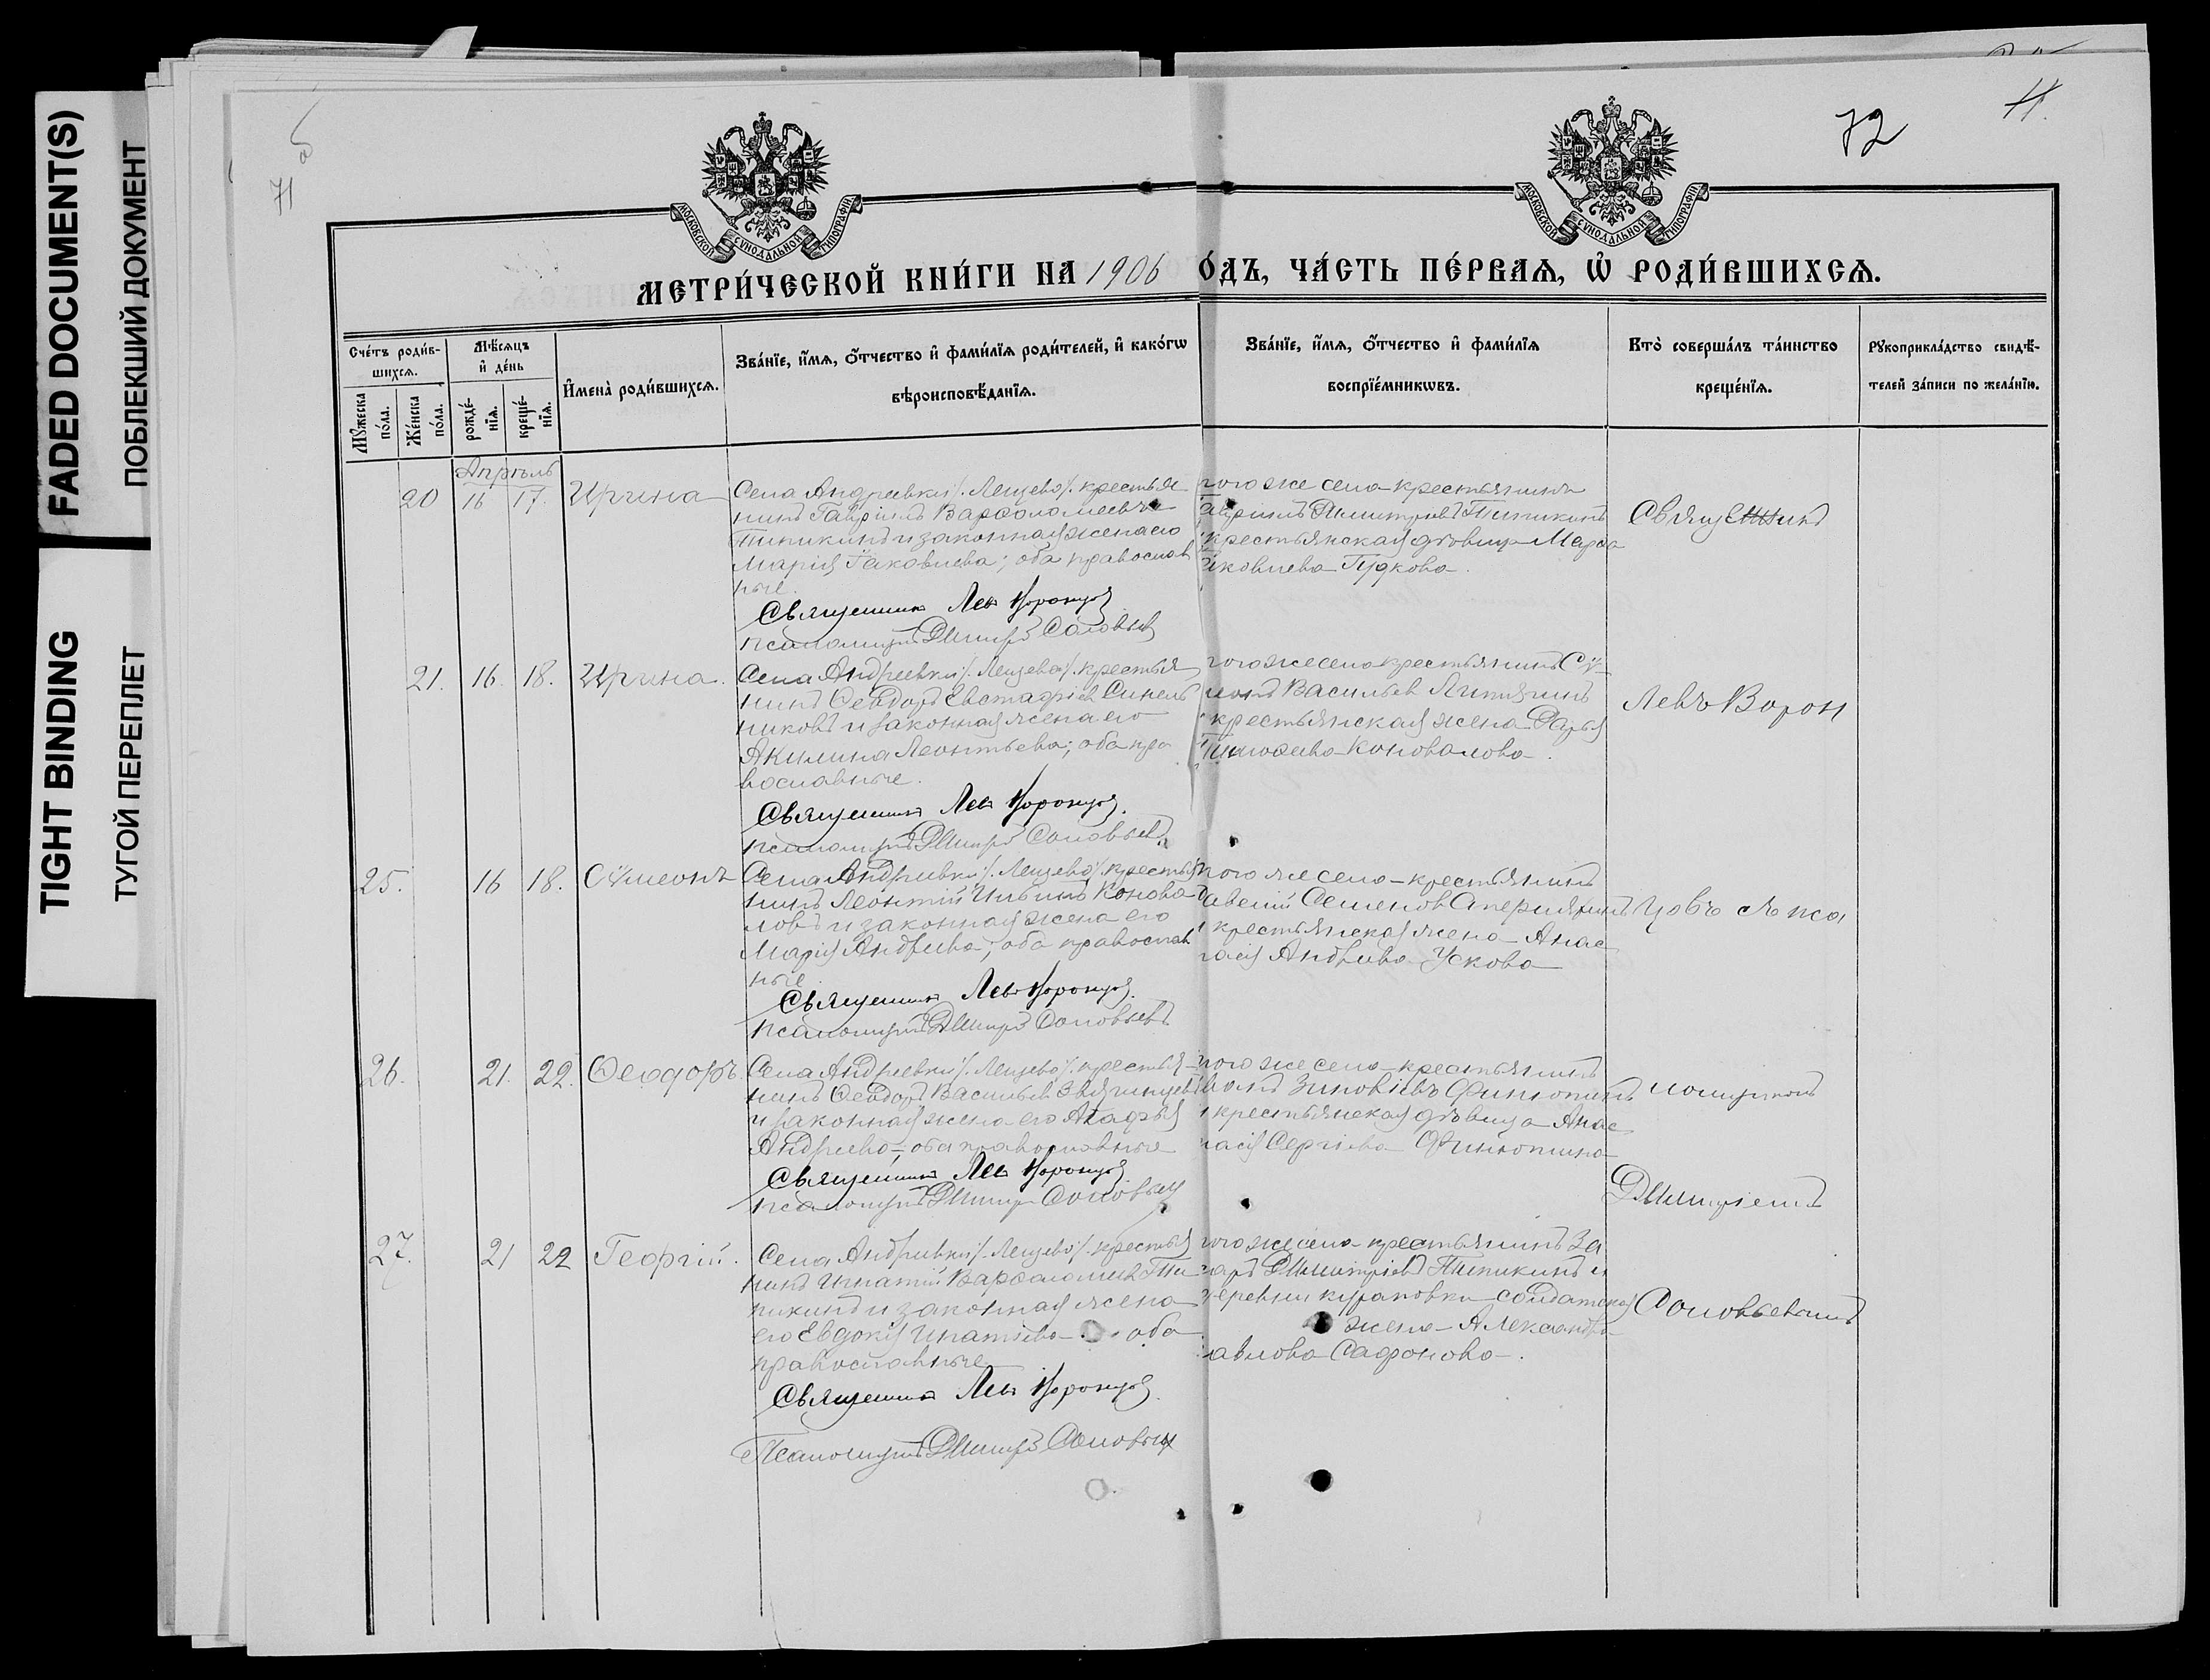 FADED DOCUMENT(S)
ПОБЛЕКШИЙ ДОКУМЕНТ
TIGHT BINDING
ТУГОЙ ПЕРЕПЛЕТ
71 об
72
11.
МОСКОВСКОЙ СѴНОДАЛЬНОЙ ТИПОГРАФІИ
МОСКОВСКОЙ СѴНОДАЛЬНОЙ ТИПОГРАФІИ
МЕТРИ́ЧЕСКОЙ КНИ́ГИ НА 1906 О́ДЪ, ЧА́СТЬ ПЕ́РВАѦ, Ѡ҆ РОДИ́ВШИХСѦ.
Сче́тъ роди́в-
шихсѧ.
Мꙋ́жеска по́ла.
Же́нска по́ла.
Мѣ́сѧцъ и҆ де́нь
рожде́-
нїѧ.
креще́-
нїѧ.
И҆мена̀ роди́вшихсѧ.
Зва́нїе, и҆́мѧ, ѻ҆́тчество и҆ фами́лїѧ роди́телей, и҆ како́гѡ
вѣроисповѣ́данїѧ.
Зва́нїе, и҆́мѧ, ѻ҆́тчество и҆ фами́лїѧ
воспрїе́мникѡвъ.
Кто̀ соверша́лъ та́инство
креще́нїѧ.
Рꙋкоприкла́дство свидѣ́-
телей за́писи по жела́нїю.
Апрѣль
20 16 17. Ирина
Села Андреевки /. Лещево /. крестья
нинъ Гавріилъ Варѳоломеевъ
Типикинъ и законная жена его
Марія Іаковлева; оба православ
ные.
Священникъ Левъ Воронцов
псаломщикъ Димитрій Соловьев
того же села крестьянинъ
Гавріилъ Димитріевъ Типикинъ
крестьянская дѣвица Марѳа
Іаковлева Гудкова.
Священникъ
21. 16. 18. Ирина.
Села Андреевки /. Лещево /. крестья
нинъ Ѳеодоръ Евстафіев Синель
никовъ и законная жена его
Акилина Леонтьева; оба пра
вославные.
Священникъ Левъ Воронцов.
псаломщикъ Димитрій Соловьев
того же села крестьянинъ Сѵ
меонъ Васильев
крестьянская жена Дарья
Тимоѳеева Коновалова.
Левъ Ворон
25. 16 18. Сѵмеонъ
Села Андреевки /. Лещево /. крестья
нинъ Леонтій Коново-
ловъ и законная жена его
Марія Андреева; оба православ
ные.
Священникъ Левъ Воронцов.
псаломщикъ Димитрій Соловьевъ
того же села крестьянинъ
Семенов
и крестьянская жена Анас
тасія Андреева Ускова
цовъ съ пса
26. 21. 22. Ѳеодоръ.
Села Андреевки /. Лещево /. крестья-
нинъ Ѳеодоръ Васильев Звягинцевъ
и законная жена его Агафья
Андреева; оба православные
Священникъ Левъ Воронцов
псаломщикъ Димитрій Соловьев
того же села крестьянинъ
Зиновіевъ
и крестьянская дѣвица Анас
тасія Сергіева
ломщикомъ
Димитріемъ
27. 21 22 Георгій.
Села Андреевки /. Лещево /. крестья
нинъ Игнатій Варѳоломеев Ти
пикинъ и законная жена
его Евдокія Ипатіева оба
православные
Священникъ Левъ Воронцов.
Псаломщикъ Димитрій Соловьев
того же села крестьянинъ За
харъ Димитріевъ Типикинъ и
деревни Кураповки солдатская
жена Александра
Павлова Сафонова.
Соловьевымъ